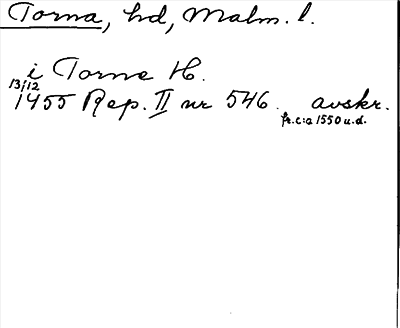 Torna, hd, Malm. l.
i Torna H.
13/12
1455 Rep. II nr 546. avskr.
fr. c:a 1550 u.d.